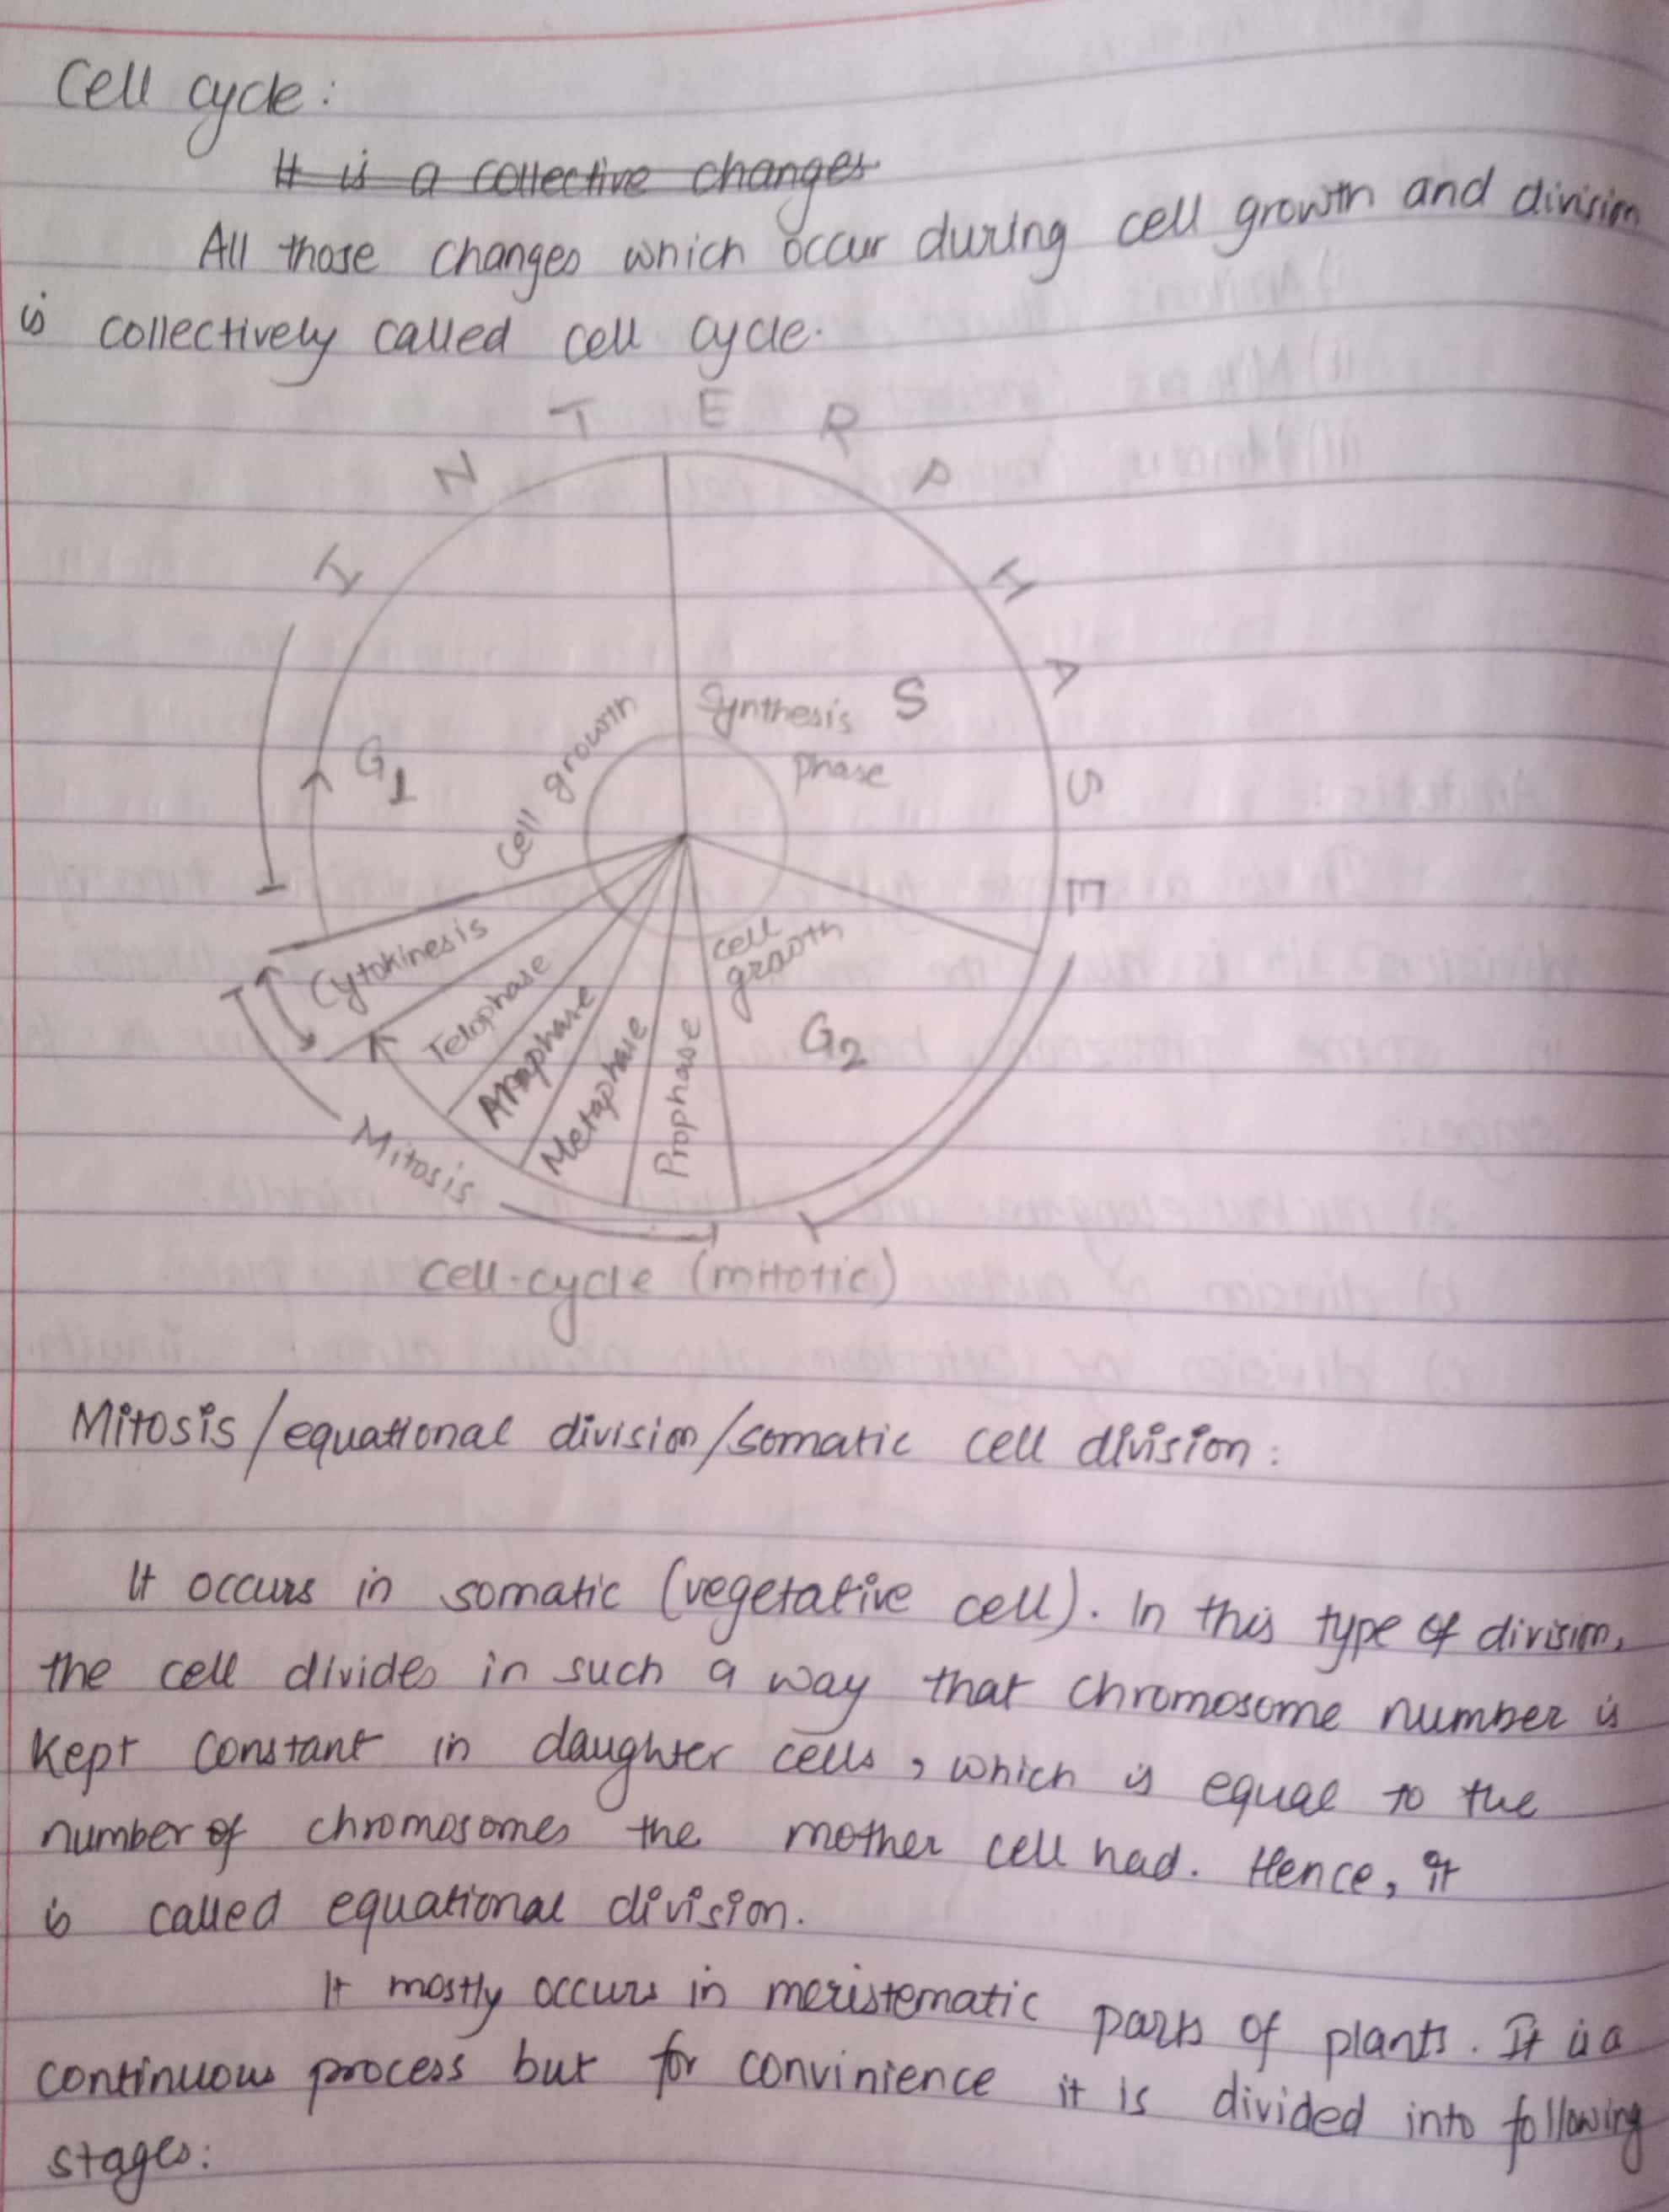 Cell cycle:
It is a collective changes
All those changes which occur during cell growth and division
is collectively called cell cycle.
INTERPHASE
Synthesis S
phase
Cell growth
G1
Cytokinesis
Telophase
Anaphase
Metaphase
Prophase
cell
growth
G2
Mitosis
Cell-cycle (mitotic)
Mitosis/equational division/somatic cell division:
It occurs in somatic (vegetative cell). In this type of division,
the cell divides in such a way that chromosome number is
kept constant in daughter cells, which is equal to the
number of chromosomes the mother cell had. Hence, it
is called equational division.
It mostly occurs in meristematic parts of plants. It is a
continuous process but for convinience it is divided into following
stages: